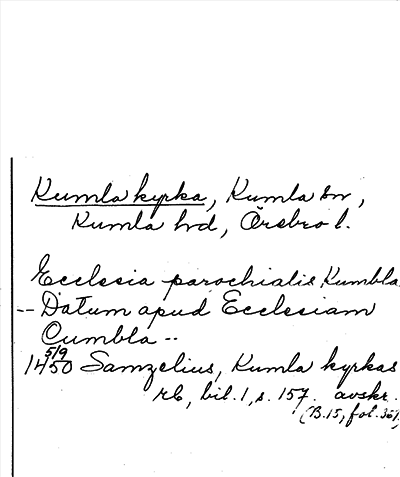 Kumla kyrka, Kumla sn,
Kumla hd, Örebro l.
Ecclesia parochialis Kumbla
-- Datum apud Ecclesiam
Cumbla --
5/9
1450 Samzelius, Kumla kyrkas
rb, bil. 1, s. 157. avskr.
(B.15, fol.